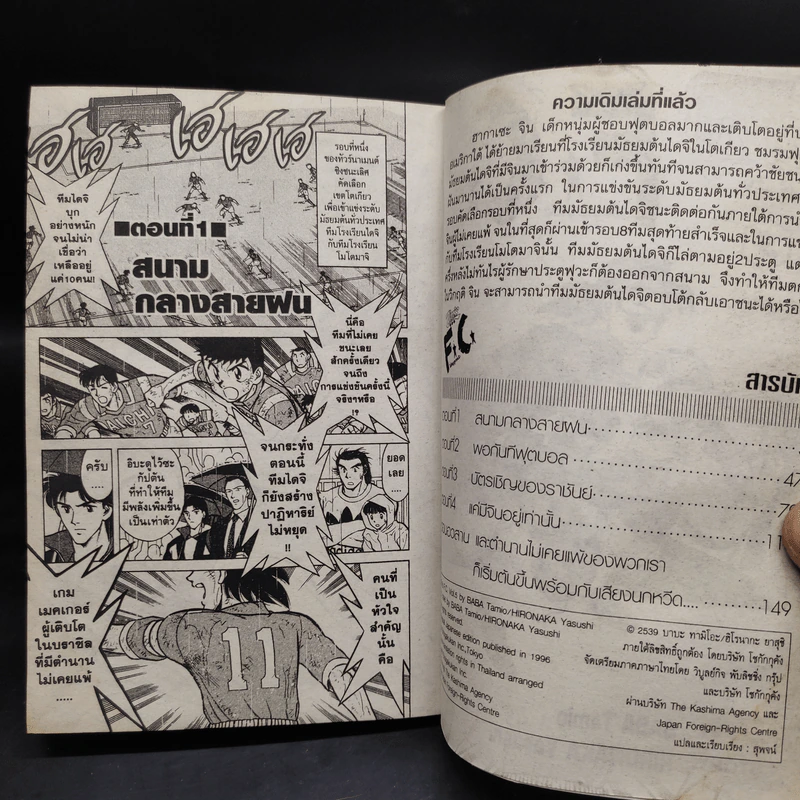 ฮ เฮ เฮ เฮ เฮ
รอบที่หนึ่ง
ของทัวร์นาเมนต์
ชิงชนะเลิศ
คัดเลือก
เขตโตเกียว
เพื่อเข้าแข่งระดับ
มัธยมต้นทั่วประเทศ
ทีมโรงเรียนไดจิ
กับทีมโรงเรียน
โมโตมาจิ
ทีมไดจิ
บุก
อย่างหนัก
จนไม่น่า
เชื่อว่า
เหลืออยู่
แค่10คน!!
■ตอนที่1■
สนาม
กลางสายฝน
นี่คือ
ทีมที่ไม่เคย
ชนะเลย
สักครั้งเดียว
จนถึง
การแข่งขันครั้งนี้
จริงๆหรือ
!?
AICHI
7
ครับ
....
อิบะคูไว้ซะ
กัปตัน
ที่ทำให้ทีม
มีพลังเพิ่มขึ้น
เป็นเท่าตัว
จนกระทั่ง
ตอนนี้
ทีมไดจิ
ก็ยังสร้าง
ปาฏิหาริย์
ไม่หยุด
!!
ยอด
เลย
....
เกม
เมคเกอร์
ผู้เติบโต
ในบราซิล
ที่มีตำนาน
ไม่เคยแพ้
.....
11
คนที่
เป็น
หัวใจ
สำคัญ
นั้น
คือ
ความเดิมเล่มที่แล้ว
ฮากาเซะ จิน เด็กหนุ่มผู้ชอบฟุตบอลมากและเติบโตอยู่ที่
อเมริกาใต้ ได้ย้ายมาเรียนที่โรงเรียนมัธยมต้นไดจิในโตเกียว ชมรมฟุ
มัธยมต้นไดจิที่มีจินมาเข้าร่วมด้วยก็เก่งขึ้นทันทีจนสามารถคว้าชัยชน
มานานได้เป็นครั้งแรก ในการแข่งขันระดับมัธยมต้นทั่วประเทศ
รอบคัดเลือกรอบที่หนึ่ง ทีมมัธยมต้นไดจิชนะติดต่อกันภายใต้การนำ
ผู้ไม่เคยแพ้ จนในที่สุดก็ผ่านเข้ารอบ8ทีมสุดท้ายสำเร็จและในการแ
กับทีมโรงเรียนโมโตมาจินั้น ทีมมัธยมต้นไดจิก็ไล่ตามอยู่2ประตู แต่
ครึ่งหลังไม่ทันไรผู้รักษาประตูฟุวะก็ต้องออกจากสนาม จึงทำให้ทีมตก
ในวิกฤติ จิน จะสามารถนำทีมมัธยมต้นไดจิตอบโต้กลับเอาชนะได้หรือ
F.C.
สารบั
ตอนที่1 สนามกลางสายฝน
ตอนที่2 พอกันทีฟุตบอล 47
ตอนที่3 บัตรเชิญของราชันย์
ตอนที่4 แค่มีจินอยู่เท่านั้น
และตำนานไม่เคยแพ้ของพวกเรา
ก็เริ่มต้นขึ้นพร้อมกับเสียงนกหวีด.... 149
Vol.5 by BABA Tamio/HIRONAKA Yasushi
by BABA Tamio/HIRONAKA Yasushi
reserved.
Japanese edition published in 1996
Inc.,Tokyo
rights in Thailand arranged
Inc
Kashima Agency
Foreign-Rights Centre
© 2539 บาบะ ทามิโอะ/ฮิโรนากะ ยาสุชิ
ภายใต้ลิขสิทธิ์ถูกต้อง โดยบริษัท โชกักกุคัง
จัดเตรียมภาคภาษาไทยโดย วิบูลย์กิจ พับลิชชิ่ง กรุ๊ป
และบริษัท โชกักกุคัง
ผ่านบริษัท The Kashima Agency และ
Japan Foreign-Rights Centre
แปลและเรียบเรียง : สุพจน์